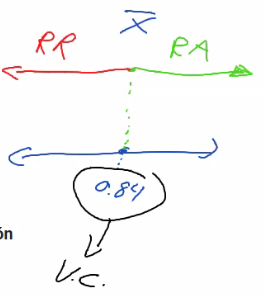 X̄
RR RA
0.84
ón
V.C.